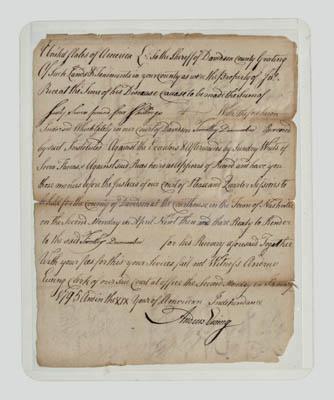 United States of America To the Sheriff of Davidson County Greeting
Of Such Lands & Tenements in your County as were the Property of Jas.
at the Time of his Decease Cause to be made the Sum of
forty Seven pounds four Shillings
which lately in our County of Davidson Timothy Demonbre
by said Against the Executors & Afterwards by Sundry Writs of
Against said as appears of Record and have you
those monies before the Justices of our Court of Pleas and Quarter Sessions to
be held for the County of Davidson at the Courthouse in the Town of Nashville
on the Second Monday in April Next Then and there Ready to Render
to the said Timothy Demonbre for his Recovery aforesaid Together
With your fees for this your Service, fail not Witness Andrew
Ewing Clerk of our said Court at office the Second Monday in January
1795 And in the XIX Year of American Independance
Andrew Ewing